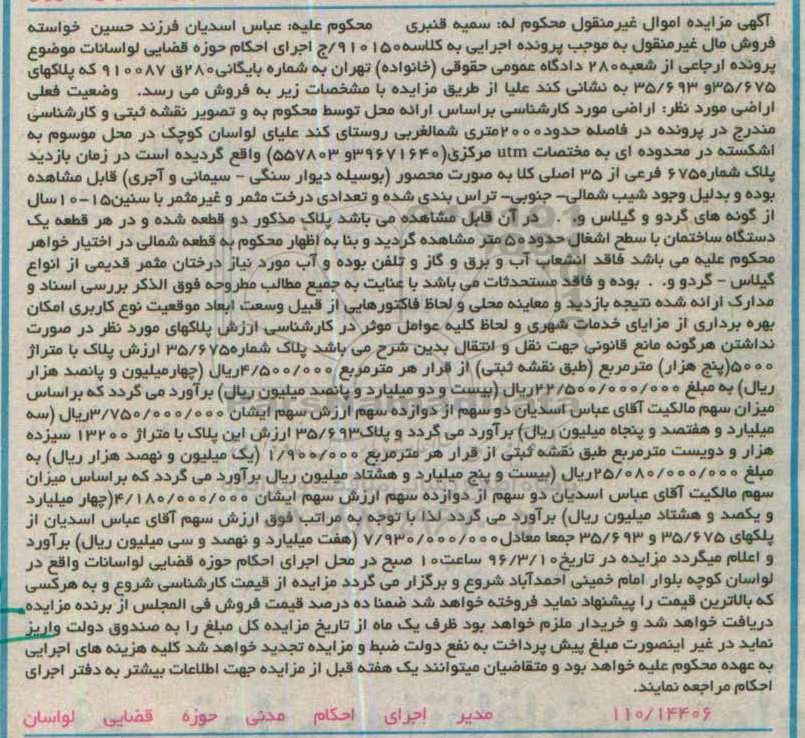 آگهی مزایده اموال غیرمنقول محکوم له: سمیه قنبری محکوم علیه: عباس اسدیان فرزند حسین خواسته
فروش مال غیرمنقول به موجب پرونده اجرایی به کلاسه۹۱۰۱۵۰/ج اجرای احکام حوزه قضایی لواسانات موضوع
پرونده ارجاعی از شعبه۲۸۰ دادگاه عمومی حقوقی (خانواده) تهران به شماره بایگانی۲۸۰ق ۹۱۰۰۸۷ که پلاکهای
۳۵/۶۷۵و ۳۵/۶۹۳ به نشانی کند علیا از طریق مزایده با مشخصات زیر به فروش می رسد. وضعیت فعلی
اراضی مورد نظر: اراضی مورد کارشناسی براساس ارائه محل توسط محکوم به و تصویر نقشه ثبتی و کارشناسی
مندرج در پرونده در فاصله حدود۲۰۰۰متری شمالغربی روستای کند علیای لواسان کوچک در محل موسوم به
اشکسته در محدوده ای به مختصات utm مرکزی(۳۹۶۷۱۶۴۰و ۵۵۷۸۰۳) واقع گردیده است در زمان بازدید
پلاک شماره۶۷۵ فرعی از ۳۵ اصلی کلا به صورت محصور (بوسیله دیوار سنگی - سیمانی و آجری) قابل مشاهده
بوده و بدلیل وجود شیب شمالی- جنوبی- تراس بندی شده و تعدادی درخت مثمر و غیرمثمر با سنین۱۵-۱۰سال
از گونه های گردو و گیلاس و. . . در آن قابل مشاهده می باشد پلاک مذکور دو قطعه شده و در هر قطعه یک
دستگاه ساختمان با سطح اشغال حدود۵۰ متر مشاهده گردید و بنا به اظهار محکوم به قطعه شمالی در اختیار خواهر
محکوم علیه می باشد فاقد انشعاب آب و برق و گاز و تلفن بوده و آب مورد نیاز درختان مثمر قدیمی از انواع
گیلاس - گردو و. . . بوده و فاقد مستحدثات می باشد با عنایت به جمیع مطالب مطروحه فوق الذکر بررسی اسناد و
مدارک ارائه شده نتیجه بازدید و معاینه محلی و لحاظ فاکتورهایی از قبیل وسعت ابعاد موقعیت نوع کاربری امکان
بهره برداری از مزایای خدمات شهری و لحاظ کلیه عوامل موثر در کارشناسی ارزش پلاکهای مورد نظر در صورت
نداشتن هرگونه مانع قانونی جهت نقل و انتقال بدین شرح می باشد پلاک شماره۳۵/۶۷۵ ارزش پلاک با متراژ
۵۰۰۰(پنج هزار) مترمربع (طبق نقشه ثبتی) از قرار هر مترمربع ۴/۵۰۰/۰۰۰ریال (چهارمیلیون و پانصد هزار
ریال) به مبلغ ۲۲/۵۰۰/۰۰۰/۰۰۰ریال (بیست و دو میلیارد و پانصد میلیون ریال) برآورد می گردد که براساس
میزان سهم مالکیت آقای عباس اسدیان دو سهم از دوازده سهم ارزش سهم ایشان ۳/۷۵۰/۰۰۰/۰۰۰ریال (سه
میلیارد و هفتصد و پنجاه میلیون ریال) برآورد می گردد و پلاک۳۵/۶۹۳ ارزش این پلاک با متراژ ۱۳۲۰۰ سیزده
هزار و دویست مترمربع طبق نقشه ثبتی از قرار هر مترمربع ۱/۹۰۰/۰۰۰ (یک میلیون و نهصد هزار ریال) به
مبلغ ۲۵/۰۸۰/۰۰۰/۰۰۰ریال (بیست و پنج میلیارد و هشتاد میلیون ریال برآورد می گردد که براساس میزان
سهم مالکیت آقای عباس اسدیان دو سهم از دوازده سهم ارزش سهم ایشان ۴/۱۸۰/۰۰۰/۰۰۰(چهار میلیارد
و یکصد و هشتاد میلیون ریال) برآورد می گردد لذا با توجه به مراتب فوق ارزش سهم آقای عباس اسدیان از
پلکهای ۳۵/۶۷۵ و ۳۵/۶۹۳ جمعا معادل۷/۹۳۰/۰۰۰/۰۰۰ (هفت میلیارد و نهصد و سی میلیون ریال) برآورد
و اعلام میگردد مزایده در تاریخ۹۶/۳/۱۰ ساعت۱۰ صبح در محل اجرای احکام حوزه قضایی لواسانات واقع در
لواسان کوچه بلوار امام خمینی احمدآباد شروع و برگزار می گردد مزایده از قیمت کارشناسی شروع و به هرکسی
که بالاترین قیمت را پیشنهاد نماید فروخته خواهد شد ضمنا ده درصد قیمت فروش فی المجلس از برنده مزایده
دریافت خواهد شد و خریدار ملزم خواهد بود ظرف یک ماه از تاریخ مزایده کل مبلغ را به صندوق دولت واریز
نماید در غیر اینصورت مبلغ پیش پرداخت به نفع دولت ضبط و مزایده تجدید خواهد شد کلیه هزینه های اجرایی
به عهده محکوم علیه خواهد بود و متقاضیان میتوانند یک هفته قبل از مزایده جهت اطلاعات بیشتر به دفتر اجرای
احکام مراجعه نمایند.
۱۱۰/۱۴۴۰۶ مدیر اجرای احکام مدنی حوزه قضایی لواسان